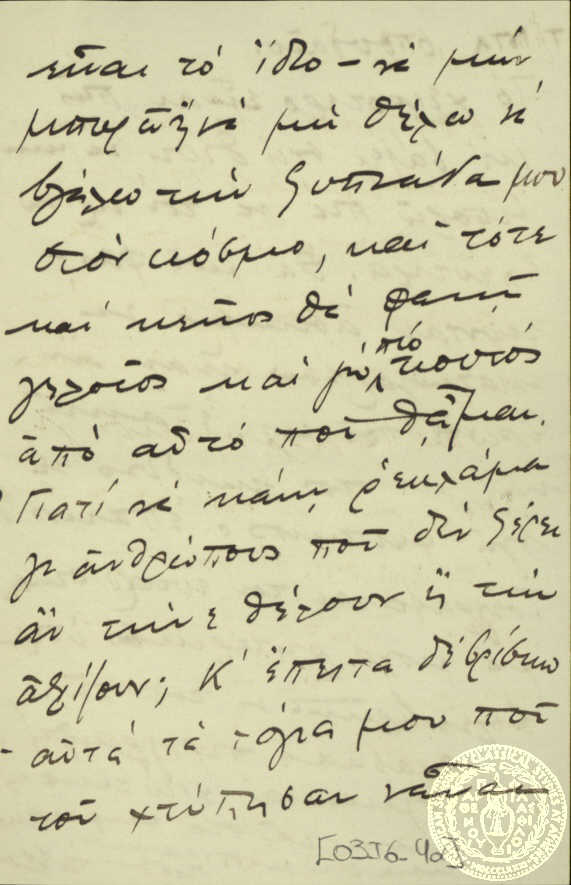 εἶναι τὸ ἴδιο – νὰ μὴν
μπορῶ ἢ νὰ μὴ θέλω ν
βγάλω τὴν ξυπνάδα μου
στὸν κόσμο, καὶ τότε
καὶ κεῖνος θὰ φανῇ
γελοῖος καὶ γὼ πιὸ κουτὸς
ἀπὸ αὐτὸ ποῦ θἆμαι.
Γιατί νὰ κάνῃ ρεκλάμα
γι ἀνθρώπους ποῦ δὲν ξέρει
ἂν τὴν θέλουν ἢ τὴν
ἀξίζουν; Κ' ἔπειτα δὲ βρίσκω
αὐτὰ τὰ λόγια μου ποῦ
τοῦ χτύπησαν νἆναι
[03Τ6-40]